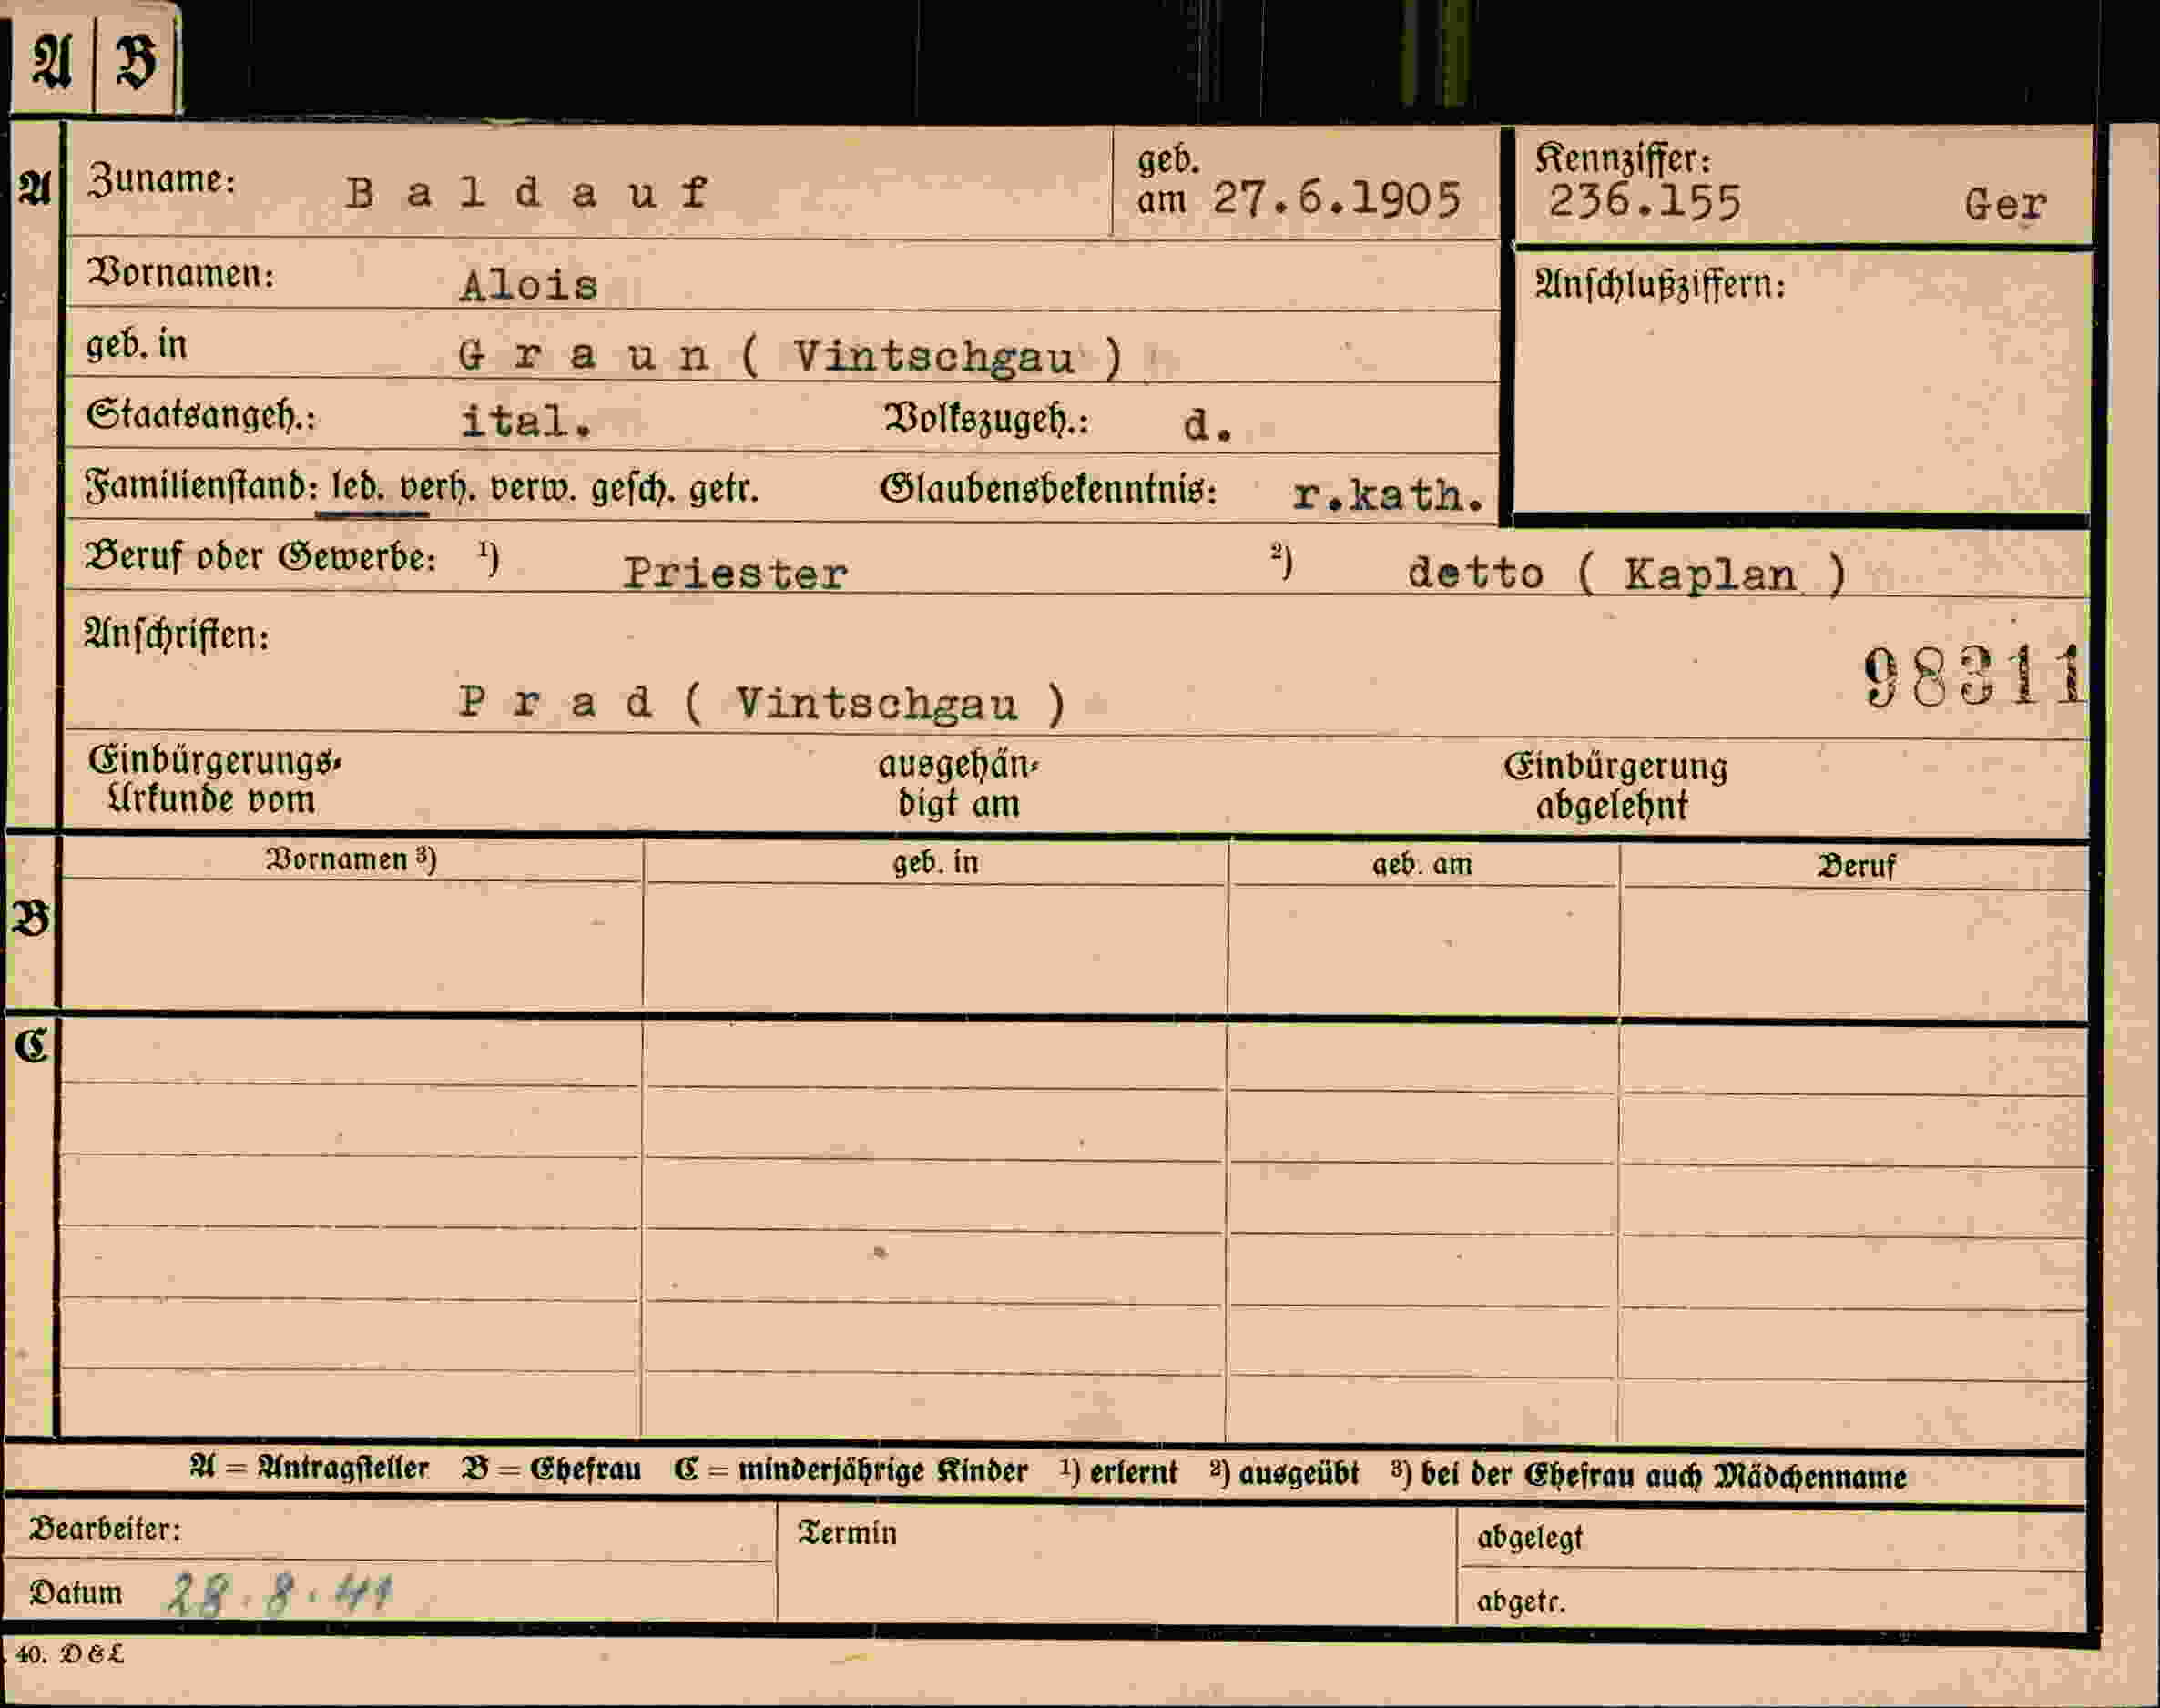 A B
A Zuname: Baldauf geb. am 27.6.1905 Kennziffer: 236.155 Ger
Vornamen: Alois Anschlußziffern:
geb. in Graun ( Vintschgau )
Staatsangeh.: ital. Volkszugeh.: d.
Familienstand: led. verh. verw. gesch. getr. Glaubensbekenntnis: r.kath.
Beruf oder Gewerbe: ¹) Priester ²) detto ( Kaplan )
Anschriften:
98311
Prad ( Vintschgau )
Einbürgerungs- ausgehän- Einbürgerung
Urkunde vom digt am abgelehnt
Vornamen ³) geb. in geb. am Beruf
B
C
A = Antragsteller B = Ehefrau C = minderjährige Kinder ¹) erlernt ²) ausgeübt ³) bei der Ehefrau auch Mädchenname
Bearbeiter: Termin abgelegt
Datum 28.8.41 abgetr.
40. D & L